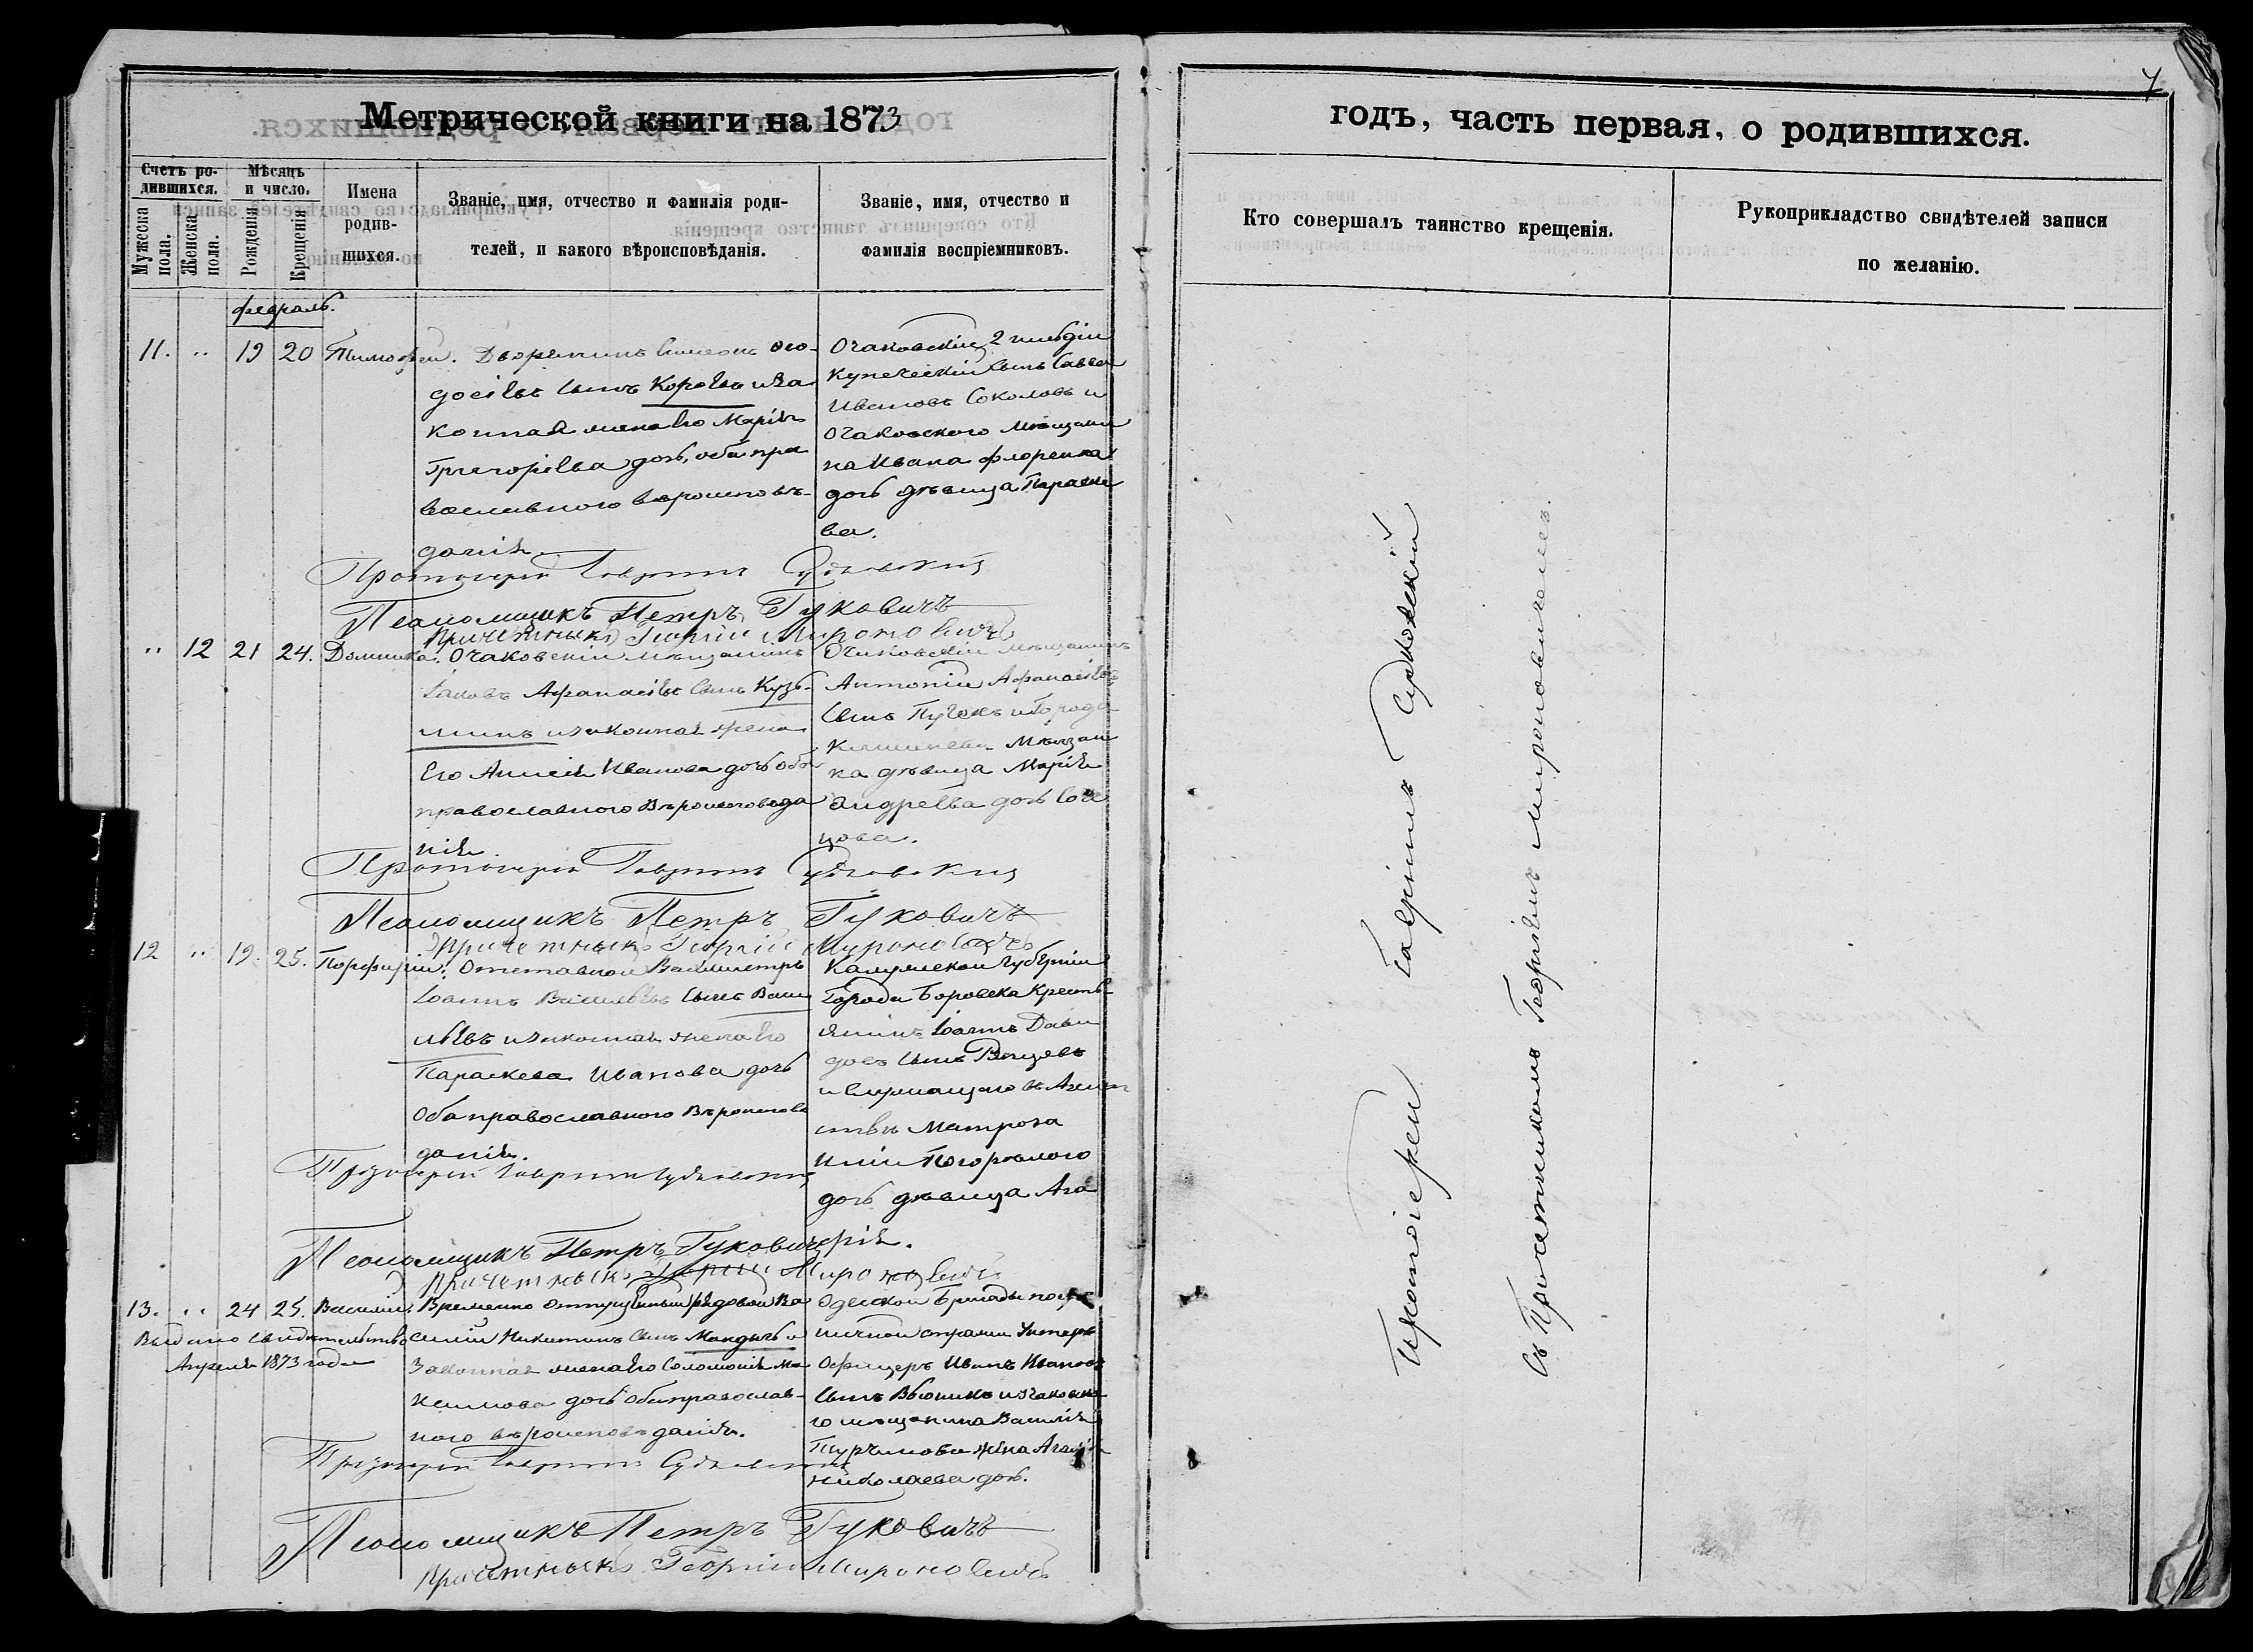 Метрической книги на 1873
годъ, часть первая, о родившихся.
7
Счетъ родившихся.
Мужеска пола.
Женска пола.
Мѣсяцъ и число.
Рожденія
Крещенія
Имена родившихся.
Званіе, имя, отчество и фамилія родителей, и какого вѣроисповѣданія.
Званіе, имя, отчество и фамилія воспріемниковъ.
Кто совершалъ таинство крещенія.
Рукоприкладство свидѣтелей записи
по желанію.
февраль.
11. .. 19 20 Тимофей.
Дворянинъ Симеонъ Ѳео-
досіевъ сынъ Коровъ и за
конная жена его Марія
Григоріева дочь, оба пра
вославного вѣроисповѣ-
данія
Очаковскій 2 гильдіи
Купеческій сынъ Савва
Ивановъ Соколовъ и
Очаковского мѣщани
на Ивана Флоренка
дочь дѣвица Параске
ва.
Протоіерей Гавріилъ Судковскій
Псаломщикъ Петръ Гуковичъ
Причетникъ Георгій Мироновичъ
.. 12 21 24. Домника.
Очаковскій мѣщанинъ
Іаковъ Афанасіевъ сынъ Кузь-
минъ и законная жена
Его Анисія Иванова дочь оба
православного вѣроисповеда
нія
Очаковскій мѣщанинъ
Антоній Афанасіевъ
сынъ и города
Кишинева мѣщан
ка дѣвица Марія
Андреева дочь
Протоіерей Гавріилъ Судковскій
Псаломщикъ Петръ Гуковичъ
Причетникъ Георгій Мироновичъ
12 .. 19. 25. Порфирій.
Отставной Вахмистръ
Іоаннъ Васильевъ сынъ Васи
льевъ и законная жена его
Параскева Иванова дочь
Оба православного вѣроиспове
данія.
Калужской Губерніи
Города Боровска Кресть-
янинъ Іоаннъ Дави
довъ сынъ
и служащаго въ Агент
ствѣ Матроза
дочь дѣвица Ага
фія.
Протоіерей Гавріилъ Судковскій
Псаломщикъ Петръ Гуковичъ
Причетникъ Георгій Мироновичъ
13. .. 24 25. Василій.
Выдано свидетельство
Апреля 1873 года
Временно отпускный рядовой Ва
силій Никитинъ сынъ Мандычъ и
Законная жена его Соломонія Ма
ксимова дочь оба православ-
ного вѣроисповѣданія.
Одесской бригады погра
ничной стражи Унтеръ
Офицеръ Иванъ Ивановъ
сынъ Вьюникъ и очаковско
го мѣщанина Василія
жена
Николаева дочь.
Протоіерей Гавріилъ Судковскій
Псаломщикъ Петръ Гуковичъ
Причетникъ Георгій Мироновичъ
Протоіерей Гавріилъ Судковскій
Съ Причетникомъ Георгіемъ Мироновичемъ.